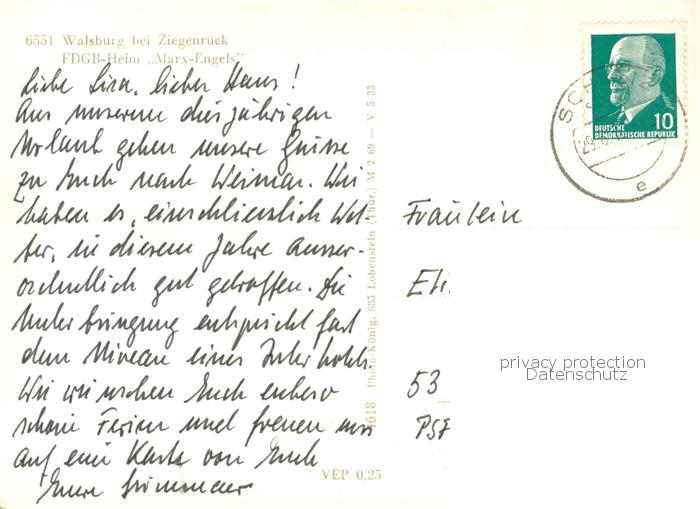 6551 Walsburg bei Ziegenrück
FDGB-Heim „Marx-Engels"
Liebe Lisa, lieber Hans!
Aus unserem diesjährigen
Urlaub gehen unsere Grüsse
zu Euch nach Weimar. Wir
haben es, einschliesslich Wet-
ter, in diesem Jahre ausser-
ordentlich gut getroffen. Die
Unterbringung entspricht fast
dem Niveau eines Interhotels.
Wir wünschen Euch ebenso
schöne Ferien und freuen uns
auf eine Karte von Euch
Eure
4618 Photo-König, 685 Lobenstein (Thür.) M 2 69 — V 5 33
VEP 0,25
DEUTSCHE
DEMOKRATISCHE REPUBLIK
10
SCH
29.
e
Fräulein
Eli
53
PSF
privacy protection
Datenschutz